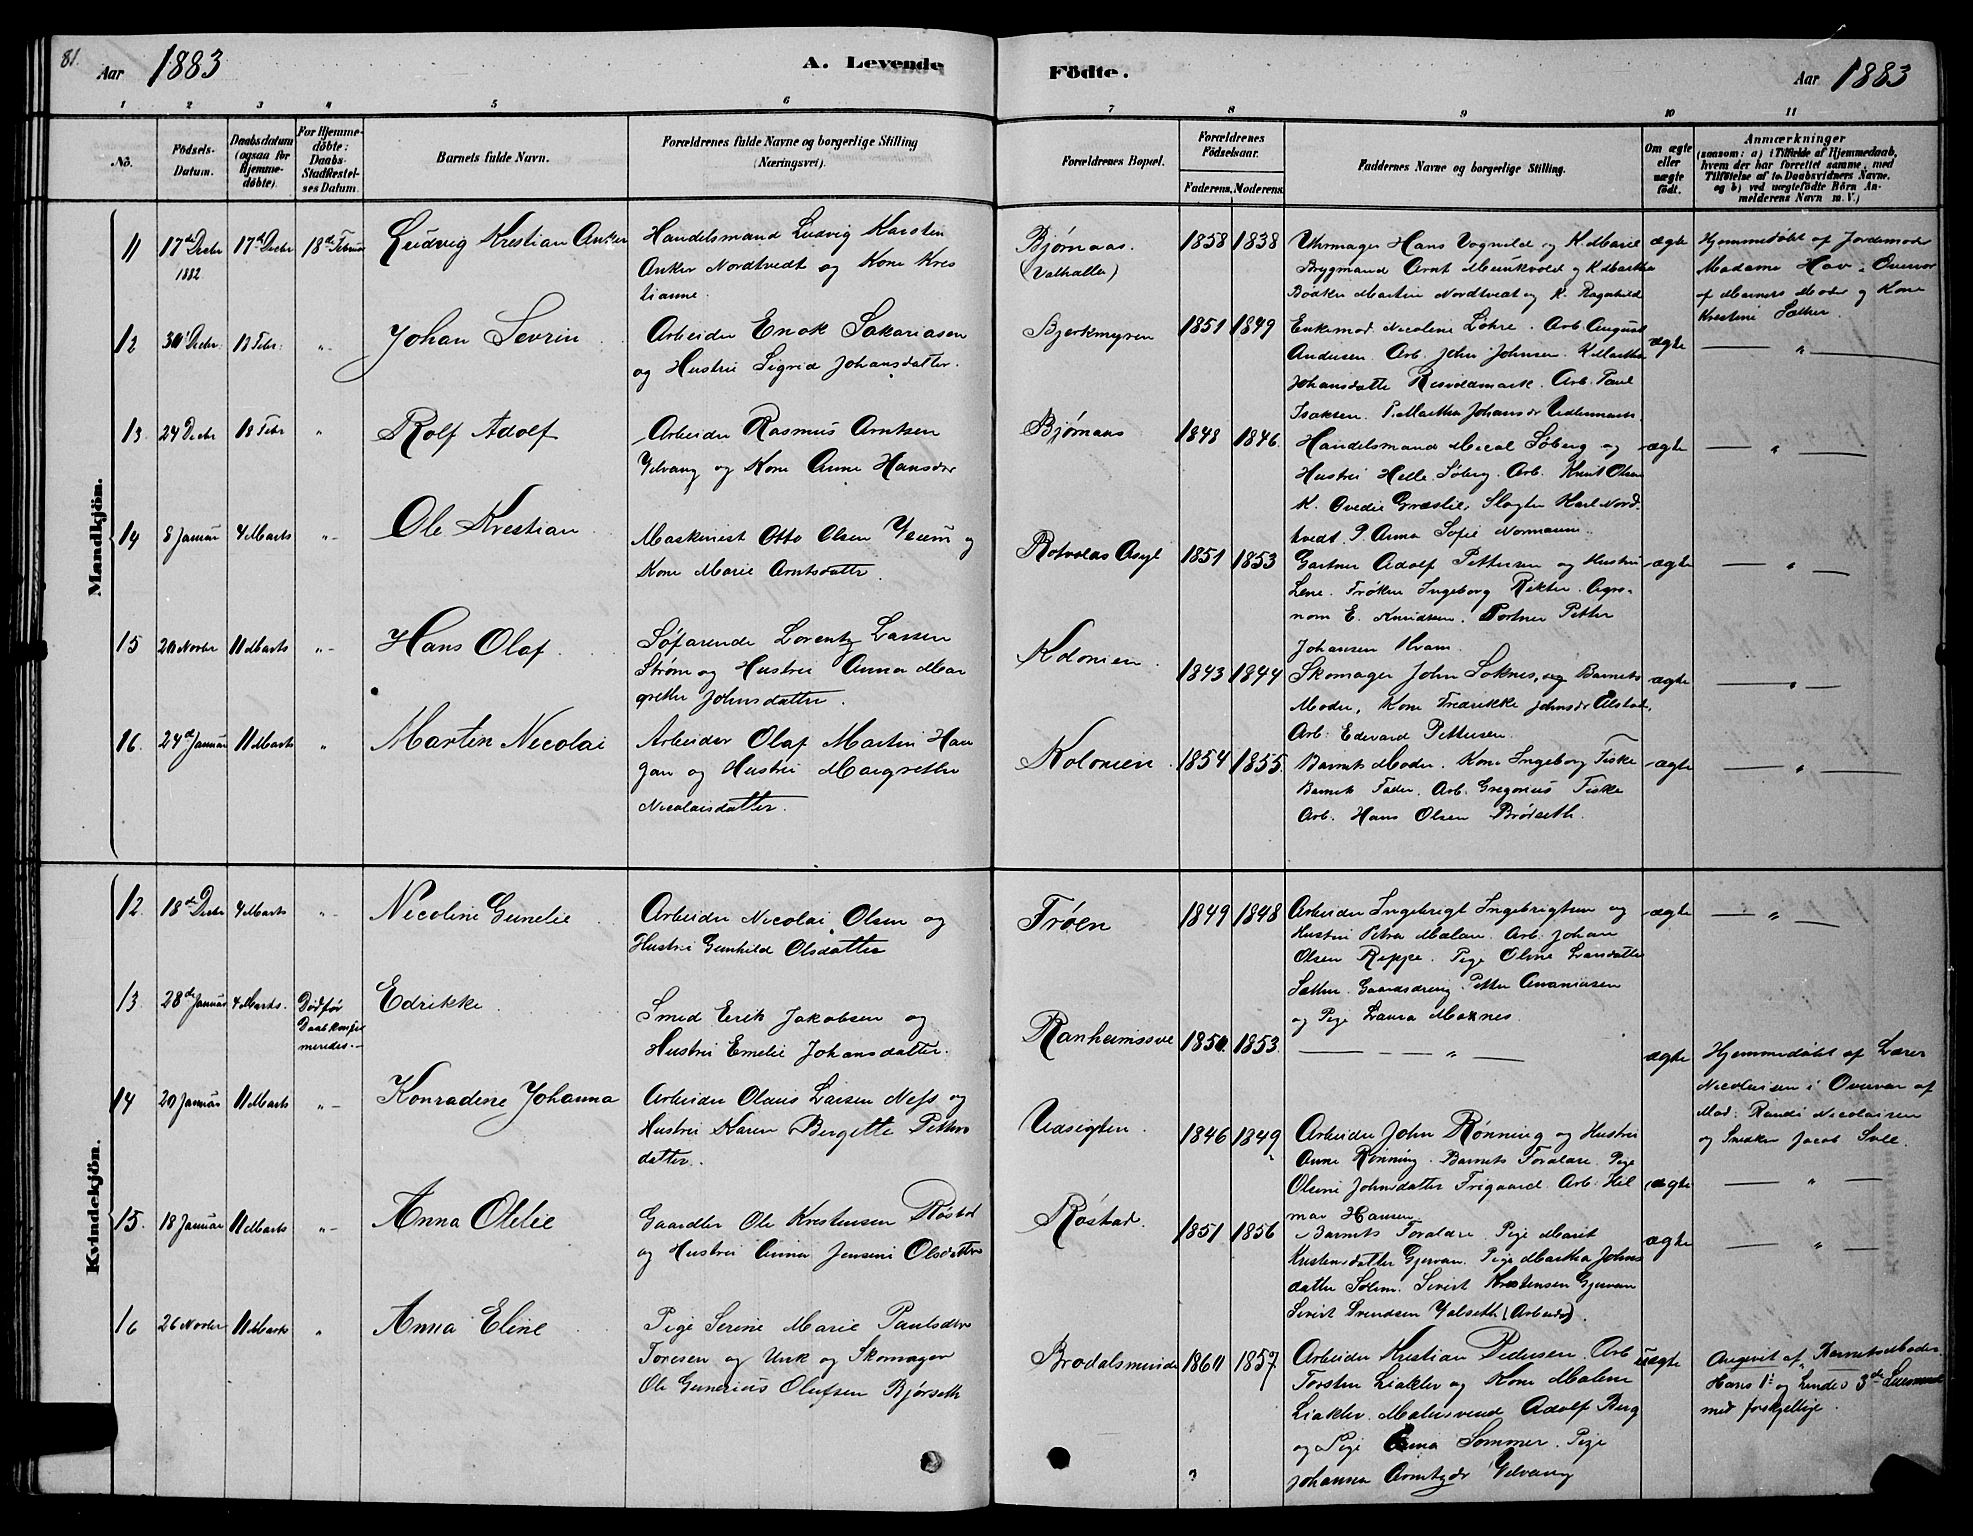 81.
Aar 1883
A. Levende
Fødte.
Aar 1883
1 2 3 4 5 6 7 8 9 10 11
No.
Födsels-
Datum.
Daabsdatum
(ogsaa for
Hjemme-
döbte).
For Hjemme-
döbte:
Daabs-
Stadfæstel-
ses Datum.
Barnets fulde Navn.
Forældrenes fulde Navne og borgerlige Stilling
(Næringsvei).
Forældrenes Bopæl.
Forældrenes
Födselsaar.
Faderens. Moderens.
Faddernes Navne og borgerlige Stilling.
Om ægte
eller
uægte
født.
Anmærkninger
(saasom: a) i Tilfælde af Hjemmedaab,
hvem der har forrettet samme, med
Tilföielse af to Daabsvidners Navne,
og b) ved uægtefödte Börn An-
melderens Navn m. V.)
Mandkjön.
11 17de Decbr 1882 17de Decbr 18de Februar
Ludvig Krestian Anker
Handelsmand Ludvig Karstin
Anker Nordtvedt og Kone Kres
tianne.
Bjørnaas.
(Valhalla)
1858 1838
Uhrmager Hans Vognild og K. Marie
Brygmand Arnt Munkvold og K. Martha
Bødker Martin Nordtvedt og K. Ragnhild
ægte
Hjemmedøbt af Jordemoder
Madame Hov i Overvær
af Barnets Moder og Kone
Krestine Sæther.
12 30' Decbr. 18 Febr. "
Johan Sevrin
Arbeider Enok Sakariasen
og Hustru Sigrid Johansdatter.
Bjerkmyren
1851 1849
Enkemad. Nicoline Løhre. Arb. August
Andersen. Arb. John Johnsen. K. Martha
Johansdatter Risvoldmark. Arb. Paul
Isaksen. P. Martha Johansdr
ægte
"
13. 24 Decbr 18 Febr "
Rolf Adolf
Arbeider Rasmus Arntsen
Velvang og Kone Anne Hansdr
Bjørnaas
1848 1846.
Handelsmand Søberg og
Hustru Helle Søberg. Arb. Knut Olsen
K. Ovedie Græslie, Slagter Karl Nord
tvedt. P. Anna Sofie Normann.
ægte
"
14 8 Januar 4 Marts "
Ole Krestian
Maskinist Otto Olsen og
Kone Marie Arntsdatter.
Rotvolds Asyl
1851 1853
Gartner Adolf Pettersen og Hustru
Lene. Frøken Ingeborg Rikter. Agro-
nom E. Knudsen. Portner Petter
Johansen Hvam.
ægte
"
15 20 Novbr 11 Marts "
Hans Olaf.
Søfarende Lorentz Larsen
Strøm og Hustru Anna Mar
grethe Johnsdatter.
Kolonien.
1843 1844
Skomager John Soknes, og Barnets
Moder, Kone Fredrikke Johnsdr Alstad.
Arb. Edevard Pettersen.
ægte
"
16. 24de Januar 11 Marts "
Martin Nicolai
Arbeider Olaf Martin Hau
gan og Hustru Margrethe
Nicolaisdatter.
Kolonien.
1854 1855.
Barnets Moder. Kone Ingeborg Fiske
Barnets Fader. Arb. Gregorius Fiske
Arb. Hans Olsen Brødseth.
ægte
"
Kvindekjön.
12. 18de Decbr 4 Marts "
Nicoline Gunelie
Arbeider Nicolai Olsen og
Hustru Gunhild Olsdatter
Trøen
1849 1848
Arbeider Ingebrigt Ingebrigtsen og
Hustru Petra Malan. Arb. Johan
Olsen Reppe. Pige Oline Larsdatter
Sæther. Gaardsdreng Petter Ananiasen
og Pige Laura Moxnes.
ægte
"
13. 28de Januar 4 Marts.
Død før
Daab konfir
meredes.
Edrikke
Smed Erik Jakobsen og
Hustru Emelie Johansdatter.
Ranheimssve
1850. 1853.
"
ægte
Hjemmedøbt af Lærer
Nicolaisen i Overvær af
Mad. Randi Nicolaisen
og Snedker Jacob Sve.
14 20 Januar 11 Marts "
Konradine Johanna
Arbeider Olaus Larsen Næss og
Hustru Karen Bergette Petters
datter.
Udsigten.
1846 1849
Arbeider John Rønning og Hustru
Anne Rønning. Barnets Forældre. Pige
Olsine Johnsdatter Trigaard. Arb. Hil
mar Hansen.
ægte
"
15. 18 Januar 11 Marts "
Anna Olelie
Gaardbr Ole Krestensen Røstad
og Hustru Anna Jensine Olsdatter
Røstad.
1851 1856
Barnets Forældre. Pige Marit
Kristensdatter Gjervan. Pige Martha Johns
datter Solem. Sivert Krestensen Gjervan
Sivert Svendsen Valseth (Arbeider).
ægte
"
16 26 Novbr 11 Marts "
Anna Eline
Pige Serine Marie Paulsdr
Toresen og Unk og Skomager
Ole Gunerius Olufsen Bjørseth
Brodalsminde
1860 1857
Arbeider Kristian Pedersen Arb
Torsten Liaklev og Kone Malene
Liaklev. Malersvend Adolf Berg
og Pige Anna Sommer. Pige
Johanna Arntzdr Velvang
Uægte
Angivet af Barnets Moder
Hans 1' og hendes 3de Leiermaal
med forskjellige.